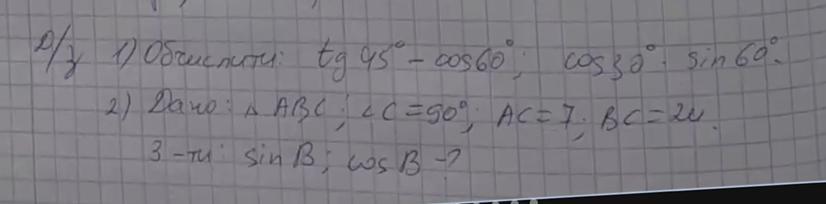 Д/з 1) Обчислити: tg 45° - cos60°; cos30° · sin60°.
2) Дано: △ ABC; ∠C = 90°; AC = 7; BC = 24.
З-ти: sin B; cos B - ?